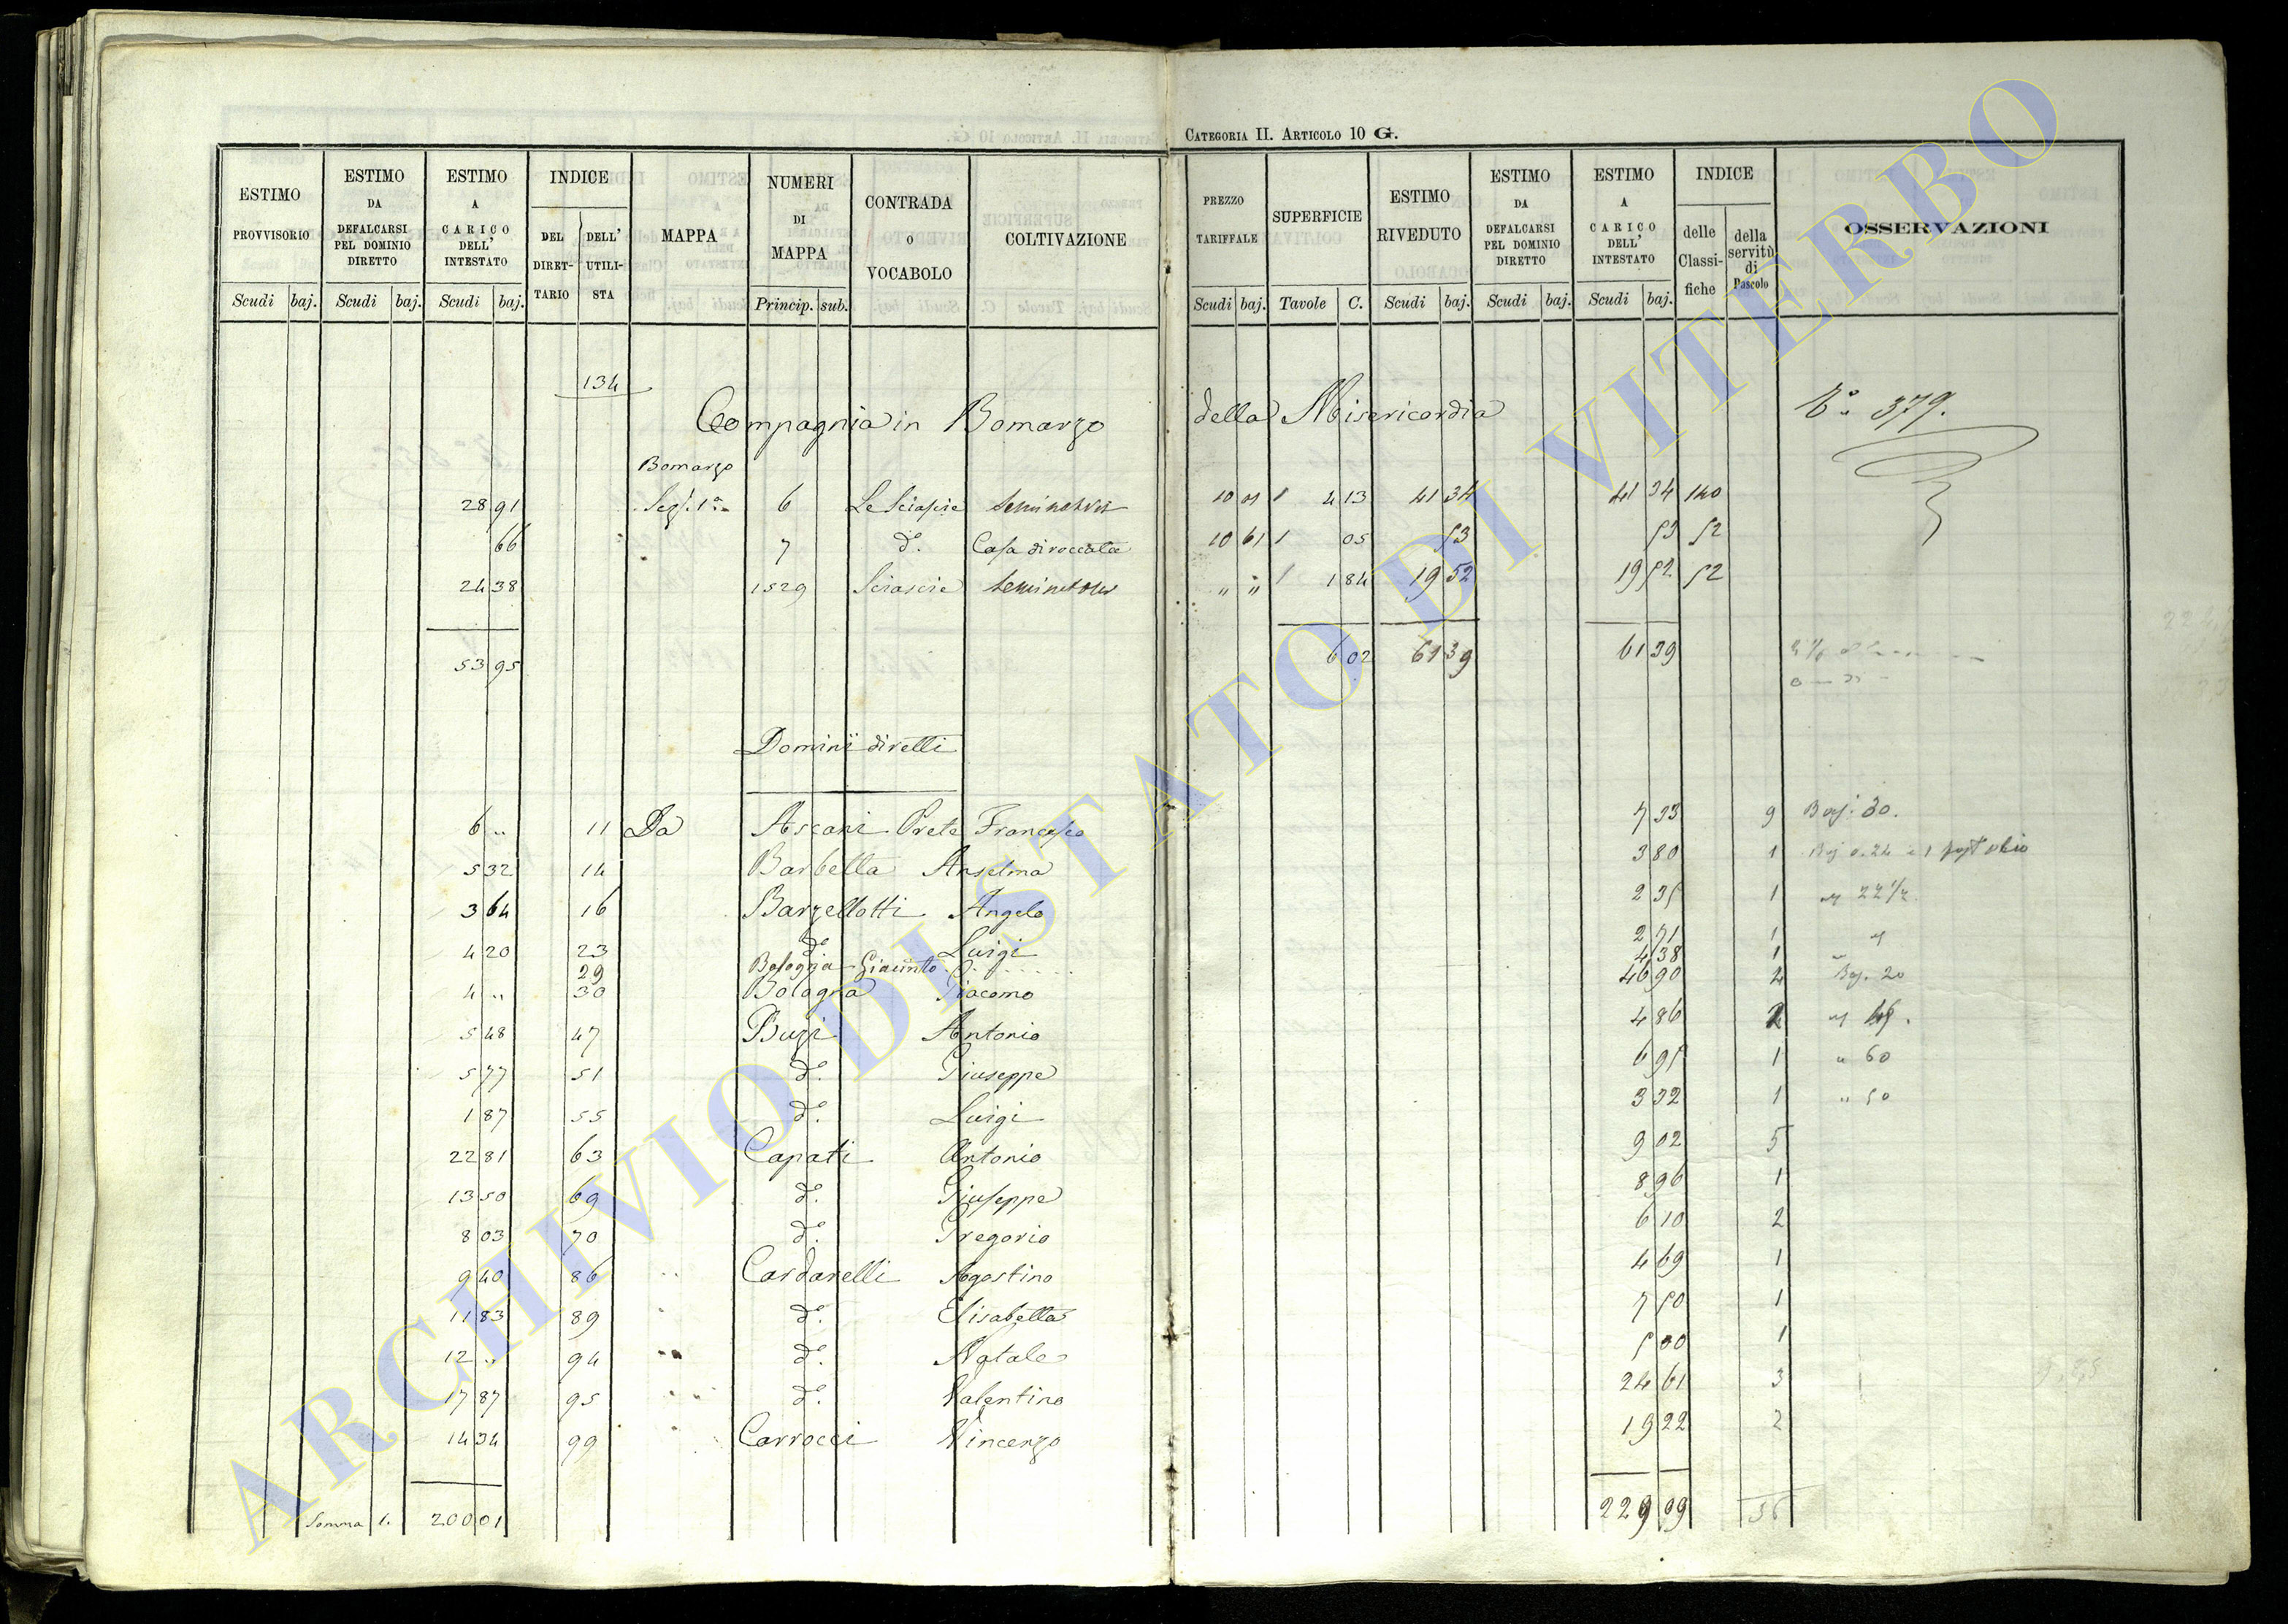 CATEGORIA II. ARTICOLO 10 G.
ESTIMO PROVVISORIO | ESTIMO DA DEFALCARSI PEL DOMINIO DIRETTO | ESTIMO A CARICO DELL' INTESTATO | INDICE DEL DIRETTARIO | DELL' UTILISTA | MAPPA | NUMERI DI MAPPA | CONTRADA O VOCABOLO | COLTIVAZIONE | PREZZO TARIFFALE | SUPERFICIE | ESTIMO RIVEDUTO | ESTIMO DA DEFALCARSI PEL DOMINIO DIRETTO | ESTIMO A CARICO DELL' INTESTATO | INDICE delle Classifiche | della servitù di Pascolo | OSSERVAZIONI
Scudi baj. | Scudi baj. | Scudi baj. | Princip. sub. | Scudi baj. | Tavole C. | Scudi baj. | Scudi baj. | Scudi baj.
134
Compagnia in Bomarzo della Misericordia N.º 379.
Bomarzo
28 91 Sez. 1ª 6 Le Sciascie Seminativo 10 01 1 4 13 41 34 41 34 140
66 7 dº. Casa diroccata 10 61 1 05 53 53 52
24 38 1529 Sciascie Seminativo " " 1 1 84 19 52 19 52 52
53 95 6 02 61 39 61 39
Dominii diretti
6 " 11 Da Ascani Prete Francesco 7 33 9 Baj. 30.
5 32 14 Barbella Anselma 3 80 1
3 64 16 Barzellotti Angelo 2 35 1 22 1/2
4 20 23 dº Luigi 2 71 1
29 Bologna Giacinto 4 38 1
4 " 30 Bologna Giacomo 46 90 4 Baj. 20
5 48 47 Buzi Antonio 4 86 2
5 77 51 dº. Giuseppe 6 95 1 " 60
1 87 55 dº. Luigi 3 32 1 " 50
22 81 63 Capati Antonio 9 02 5
13 50 69 dº. Giuseppe 8 96 1
8 03 70 dº. Gregorio 6 10 2
9 40 86 Cardarelli Agostino 4 69 1
11 83 89 dº. Elisabetta 7 50 1
12 " 94 dº. Natale 5 00 1
17 87 95 dº. Valentino 24 61 3
14 34 99 Carrocci Vincenzo 19 22 2
Somma L. 200 01 229 09 36
ARCHIVIO DI STATO DI VITERBO